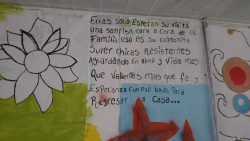 Ellas solo Esperan su visita
una sonrisa cara a cara de el
Familia eso es su comidita
Super chicas Resistentes
Aguardando en alma y vida mas
que valientes mas que fe y
Esperanza con eso basta para
Regresar a casa...